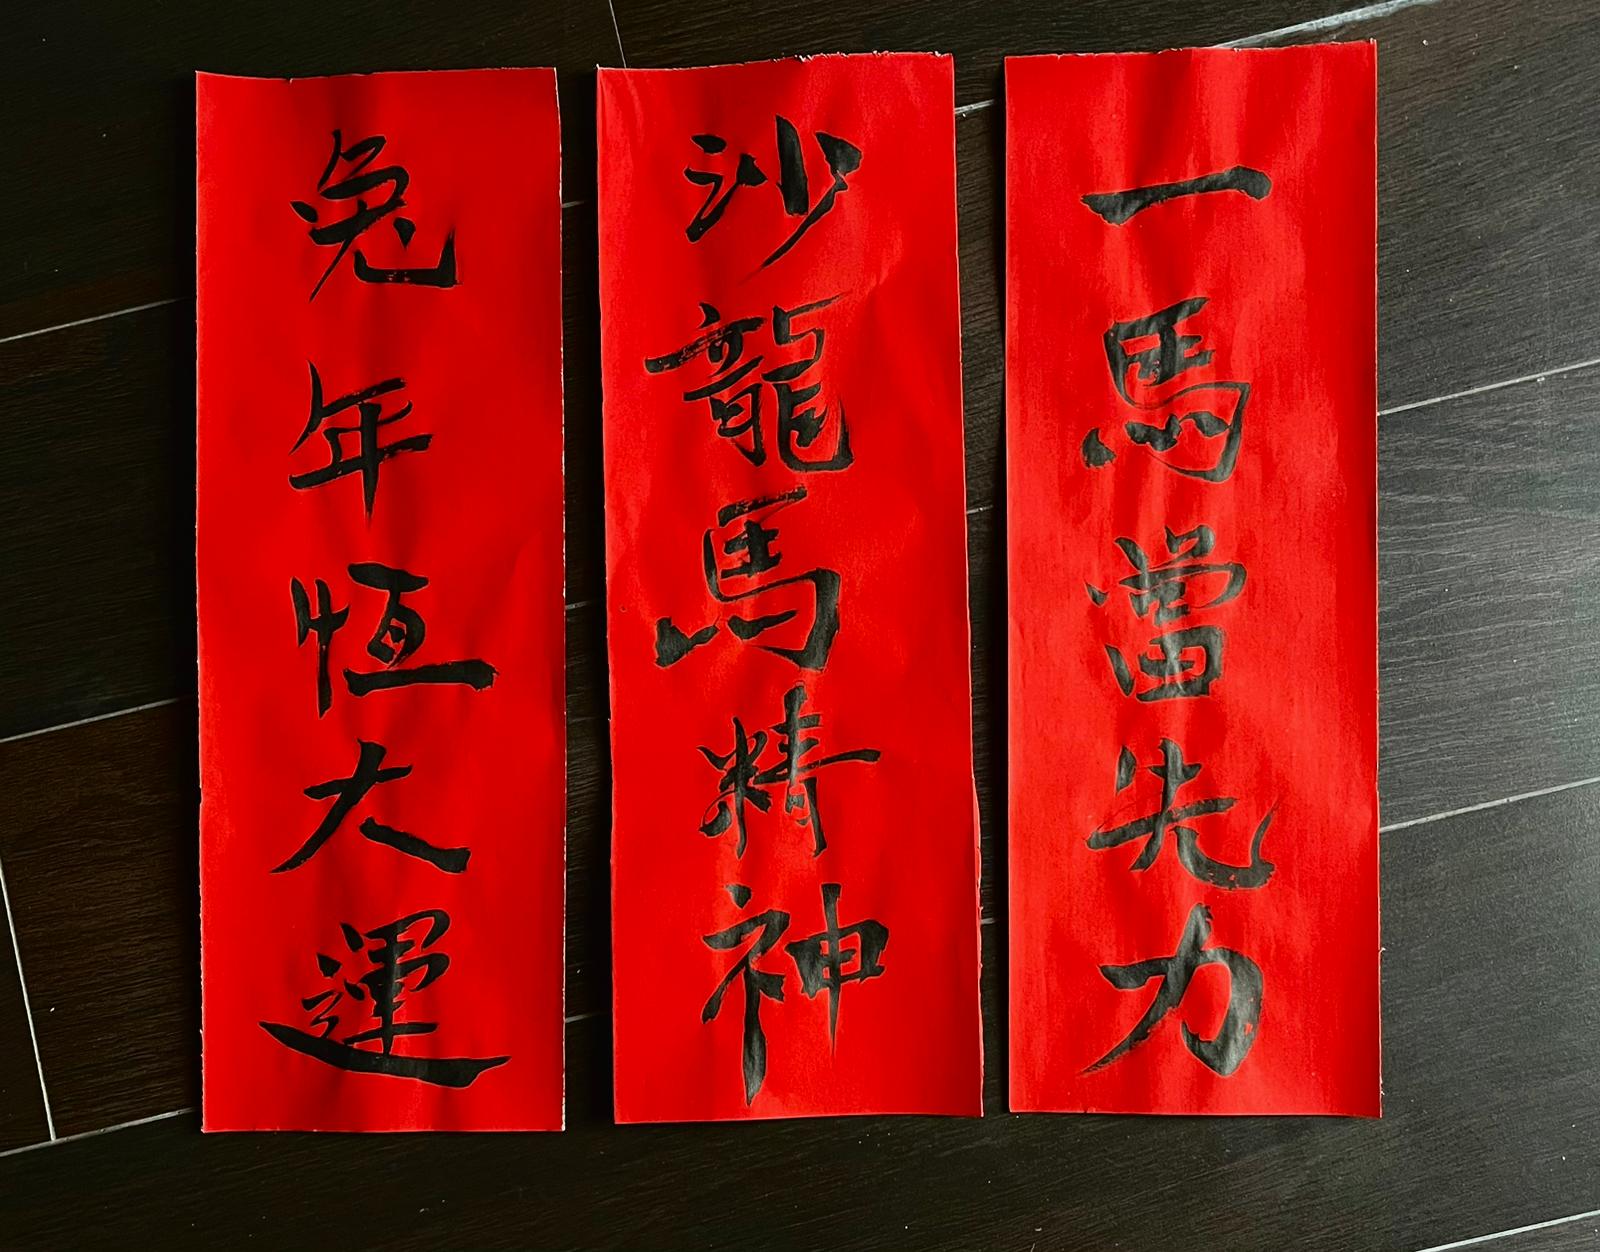 一馬當先力
沙龍馬精神
兔年恆大運